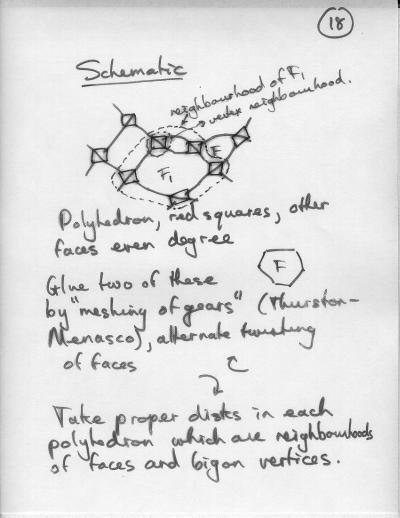 18
Schematic
neighbourhood of F1
vertex neighbourhood.
F
F1
Polyhedron, red squares, other
faces even degree
F
Glue two of these
by "meshing of gears" (Thurston-
Menasco), alternate twisting
of faces
Take proper disks in each
polyhedron which are neighbourhoods
of faces and bigon vertices.